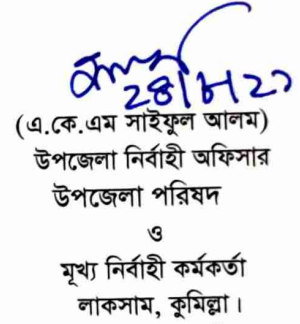 (এ.কে.এম সাইফুল আলম)
উপজেলা নির্বাহী অফিসার
উপজেলা পরিষদ
ও
মূখ্য নির্বাহী কর্মকর্তা
লাকসাম, কুমিল্লা।